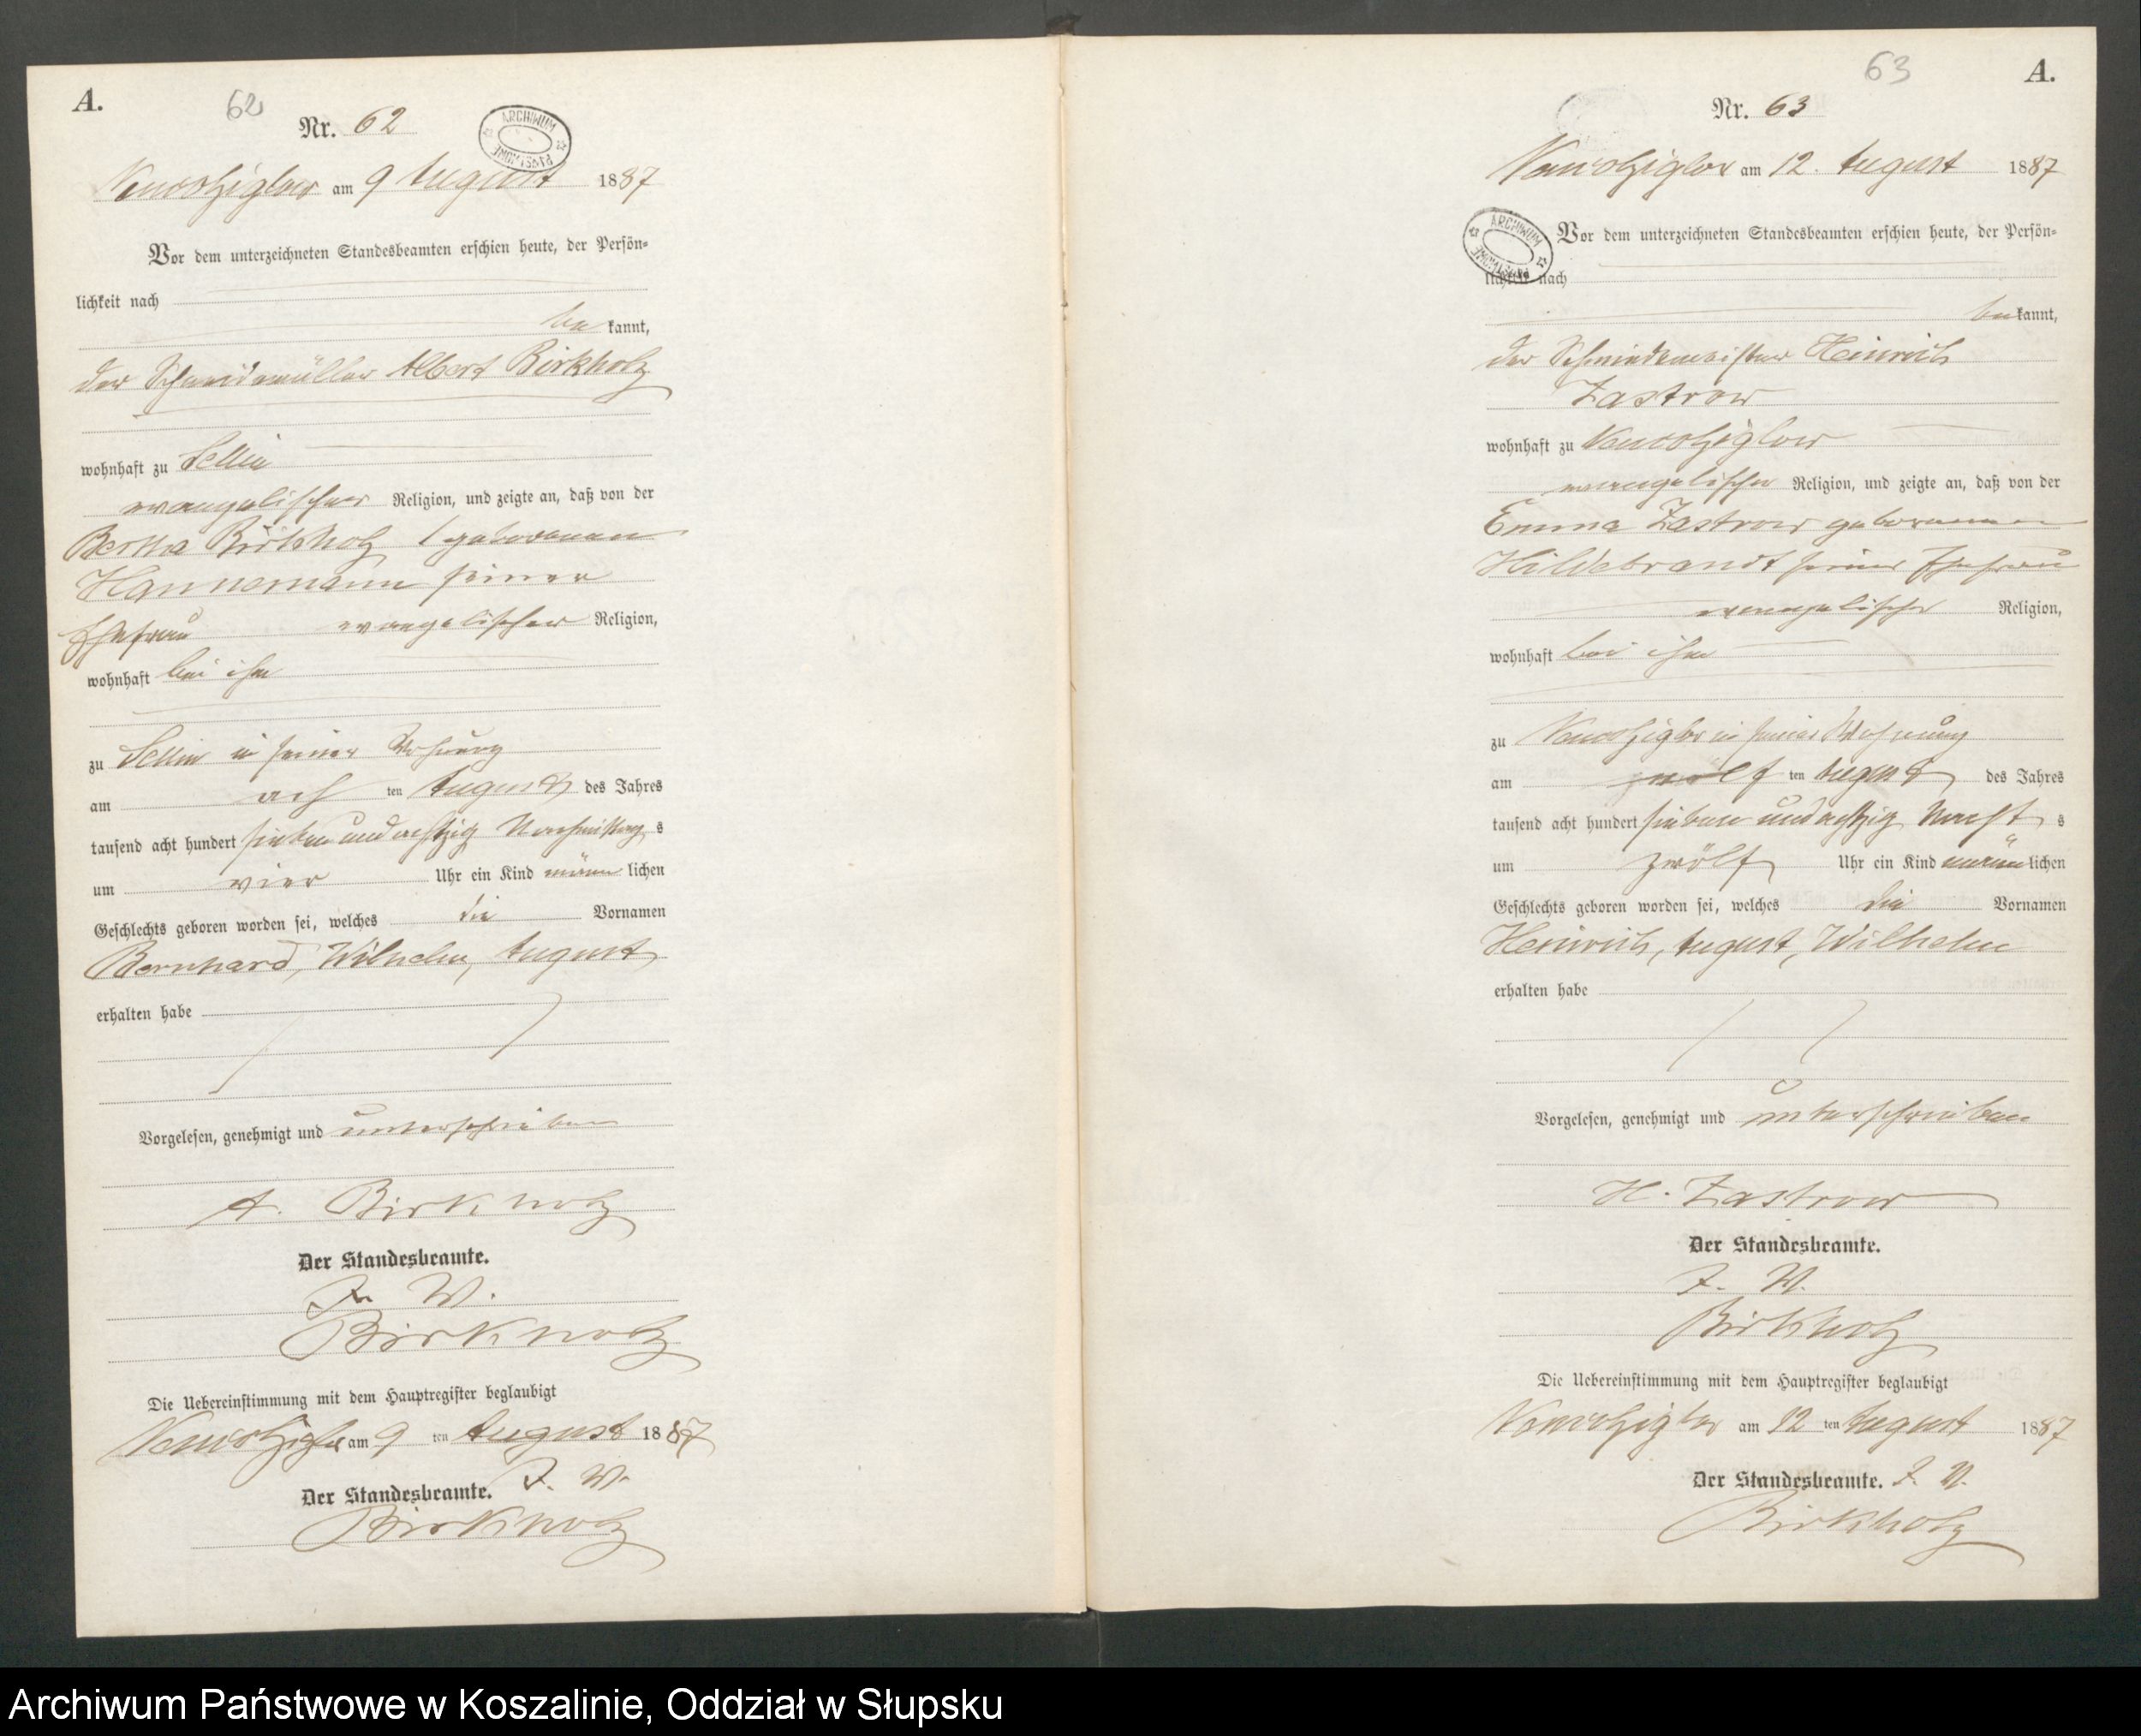 A.
62
Nr. 62
ARCHIWUM PAŃSTWOWE
am 9 August 1887
Vor dem unterzeichneten Standesbeamten erschien heute, der Persön-
lichkeit nach
be kannt,
der Schneidemüller Albert Birkholz
wohnhaft zu Sellin
evangelischer Religion, und zeigte an, daß von der
Bertha Birkholz geborenen
Hannemann seiner
Ehefrau evangelischer Religion,
wohnhaft bei ihm
zu Sellin in seiner Wohnung
am ach ten August des Jahres
tausend acht hundert sieben und achtzig Nachmittag s
um vier Uhr ein Kind männ lichen
Geschlechts geboren worden sei, welches die Vornamen
Bernhard, Wilhelm, August
erhalten habe
Vorgelesen, genehmigt und unterschrieben
A. Birkholz
Der Standesbeamte.
J. V.
Birkholz
Die Uebereinstimmung mit dem Hauptregister beglaubigt
am 9 ten August 1887
Der Standesbeamte. J. V.
Birkholz
63
A.
Nr. 63
am 12. August 1887
ARCHIWUM PAŃSTWOWE
Vor dem unterzeichneten Standesbeamten erschien heute, der Persön-
lichkeit nach
be kannt,
der Schmiedemeister Heinrich
Zastrow
wohnhaft zu
evangelischer Religion, und zeigte an, daß von der
Emma Zastrow geborenen
Hildebrandt seiner Ehefrau
evangelischer Religion,
wohnhaft bei ihm
zu in seiner Wohnung
am zwölf ten August des Jahres
tausend acht hundert sieben und achtzig Nacht s
um zwölf Uhr ein Kind männ lichen
Geschlechts geboren worden sei, welches die Vornamen
Heinrich, August, Wilhelm
erhalten habe
Vorgelesen, genehmigt und unterschrieben
H. Zastrow
Der Standesbeamte.
J. V.
Birkholz
Die Uebereinstimmung mit dem Hauptregister beglaubigt
am 12 ten August 1887
Der Standesbeamte. J. V.
Birkholz
Archiwum Państwowe w Koszalinie, Oddział w Słupsku